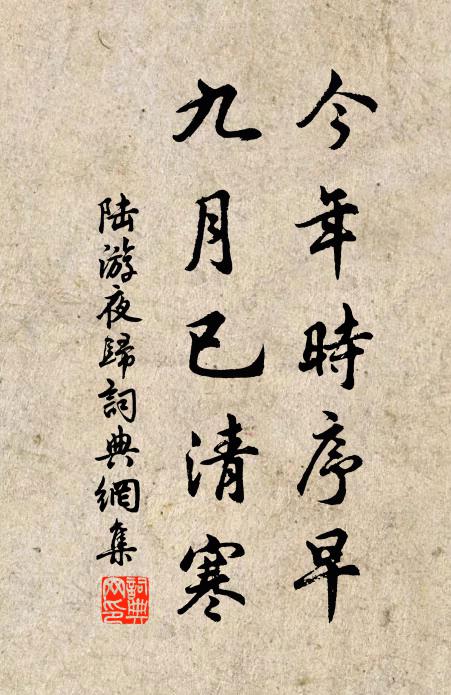 今年時序早
九月已清寒
陸游夜歸詞典網集
詞典
网印